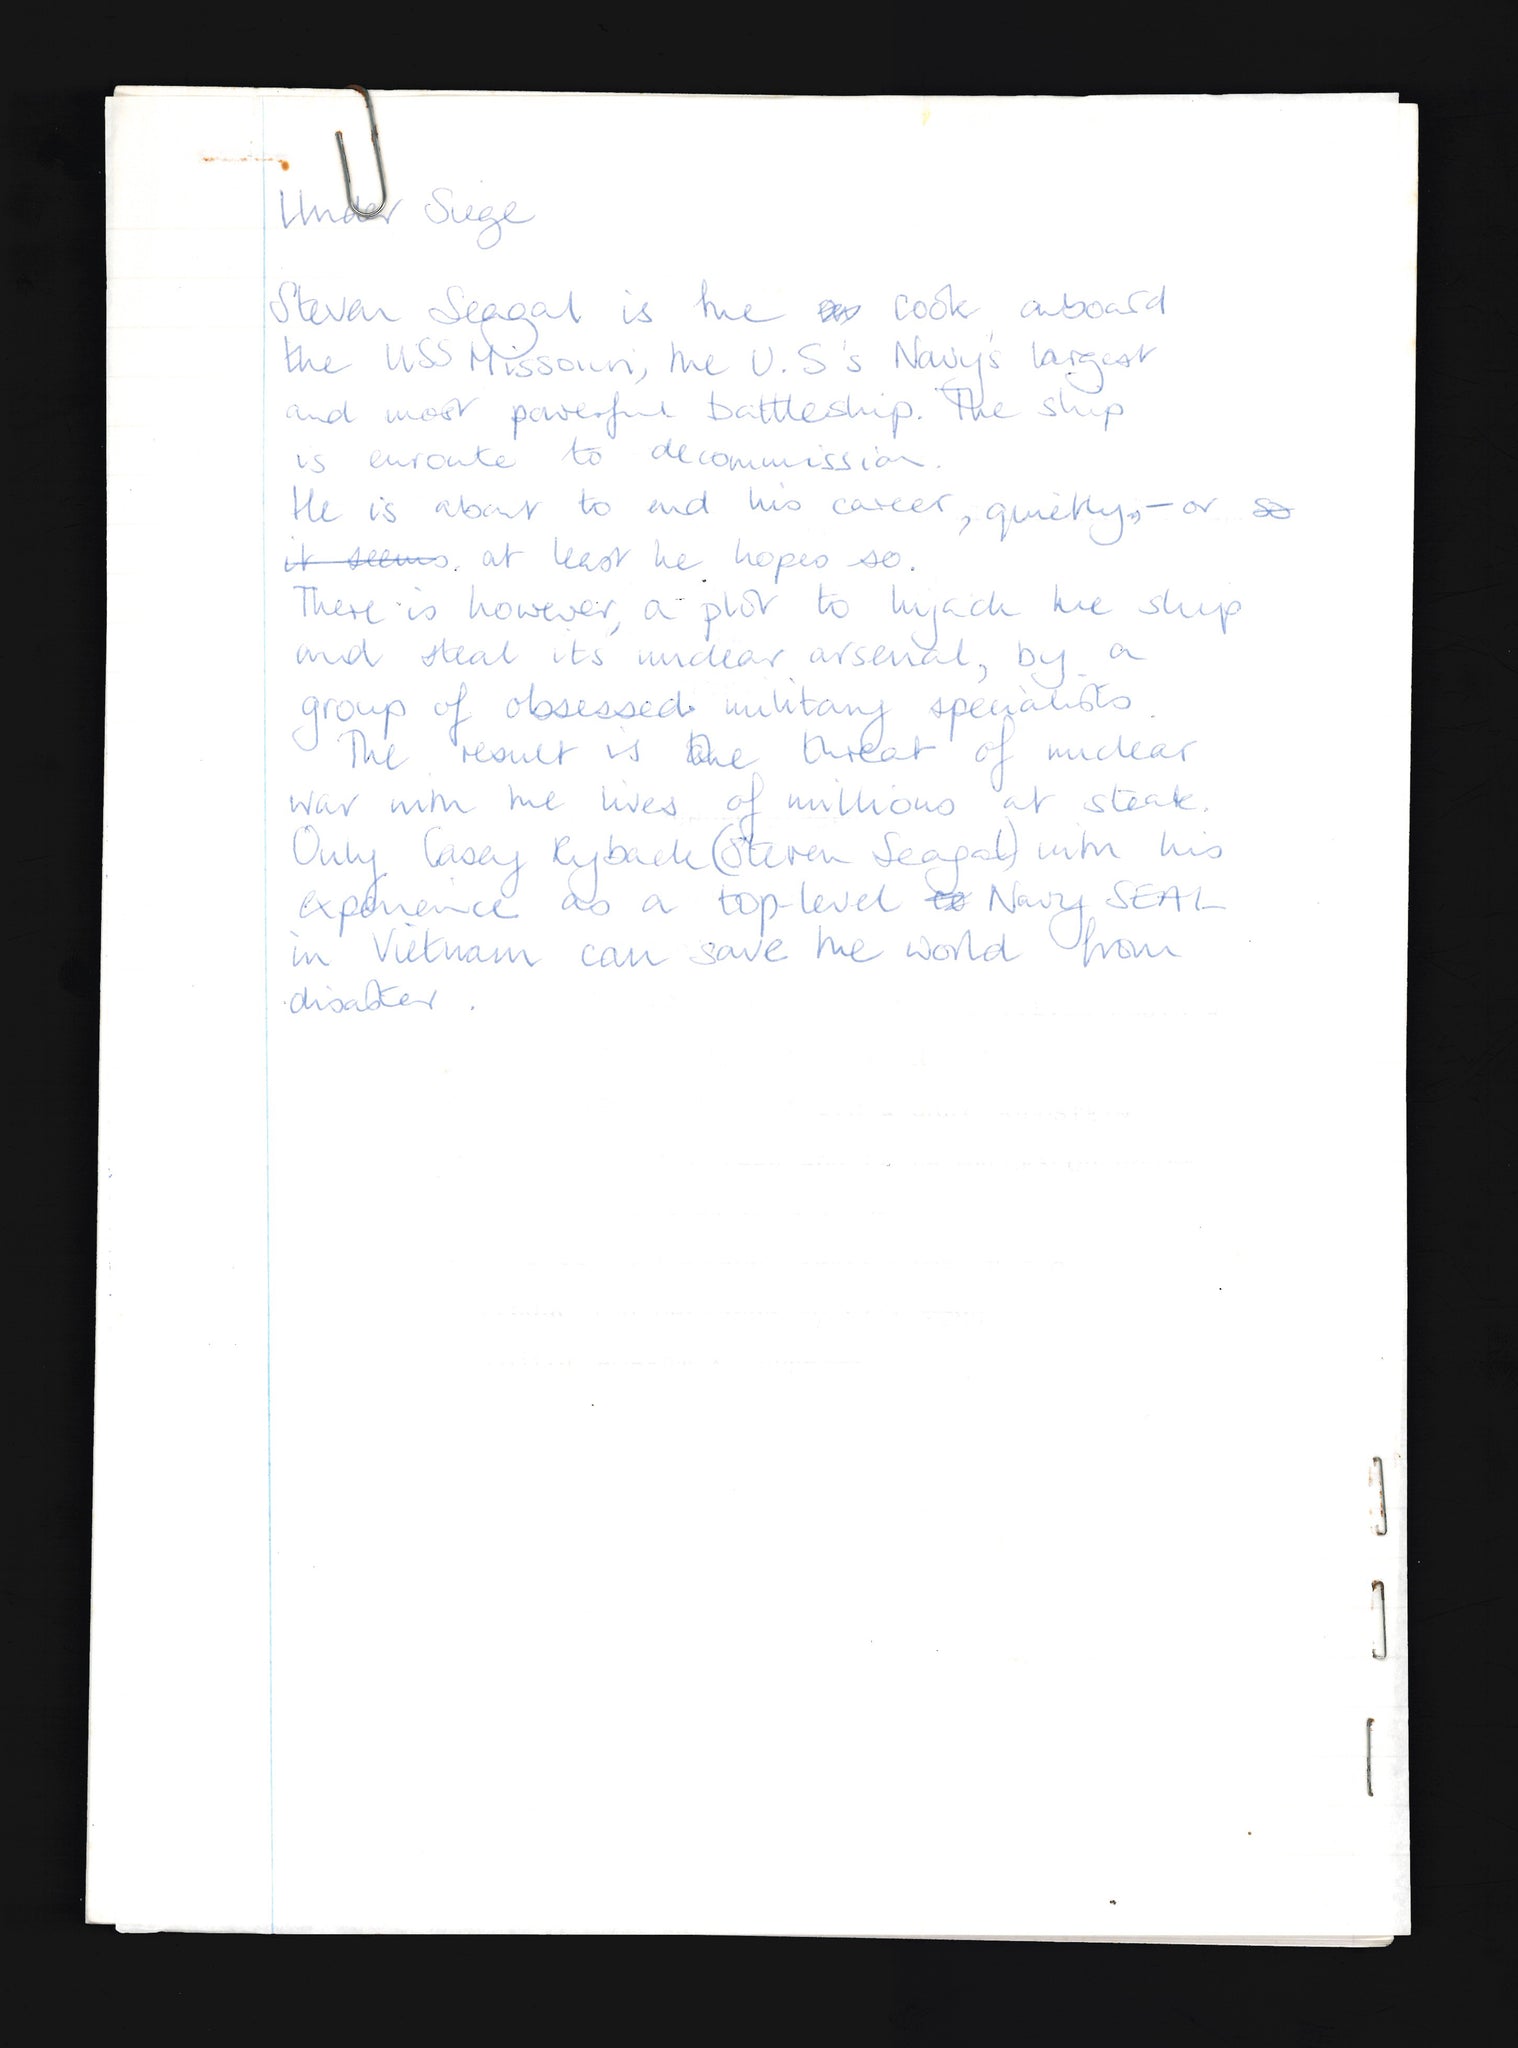 Under Siege
Steven Seagal is the cook aboard
the USS Missouri, the U.S's Navy's largest
and most powerful battleship. The ship
is enroute to decommission.
He is about to end his career, quietly, - or so
it seems. at least he hopes so.
There is however, a plot to hijack the ship
and steal its nuclear arsenal, by a
group of obsessed military specialists.
The result is the threat of nuclear
war with the lives of millions at steak.
Only Casey Ryback (Steven Seagal) with his
experience as a top-level Navy SEAL
in Vietnam can save the world from
disaster.